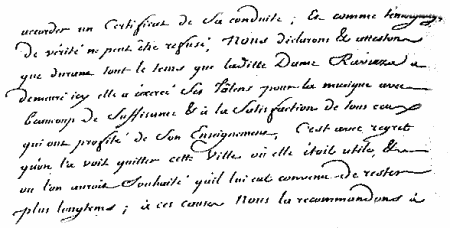 accorder un Certificat de Sa conduite ; Et comme témoignage
de vérité ne peut être refusé, Nous déclarons & attestons
que durant tout le tems que laditte Dame Ravizza a
demeuré icy elle a exercé Ses talens pour la musique avec
beaucoup de Suffisance & à la Satisfaction de tous ceux
qui ont profité de Son Enseignement, C'est avec regret
qu'on la voit quitter cette Ville où elle étoit utile, &
où l'on auroit Souhaité qu'il lui eut convenu de rester
plus longtems ; à ces causes Nous la recommandons à